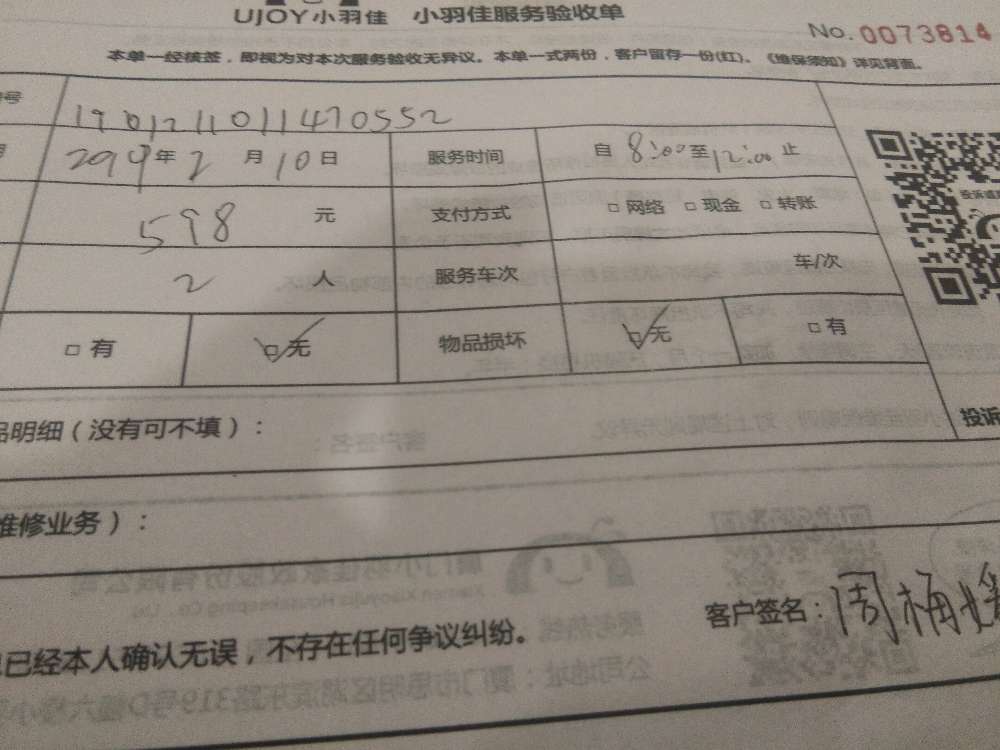 UJOY小羽佳 小羽佳服务验收单
No. 0073814
本单一经核签，即视为对本次服务验收无异议。本单一式两份，客户留存一份(红)。《维保须知》详见背面。
号 190121101147 0552
2019年2月10日 服务时间 自8:00至12:00止
598元 支付方式 □网络 □现金 □转账
2人 服务车次 车/次
□有 ☑无 物品损坏 ☑无 □有
品明细（没有可不填）：
投诉
维修业务）：
已经本人确认无误，不存在任何争议纠纷。
客户签名：周